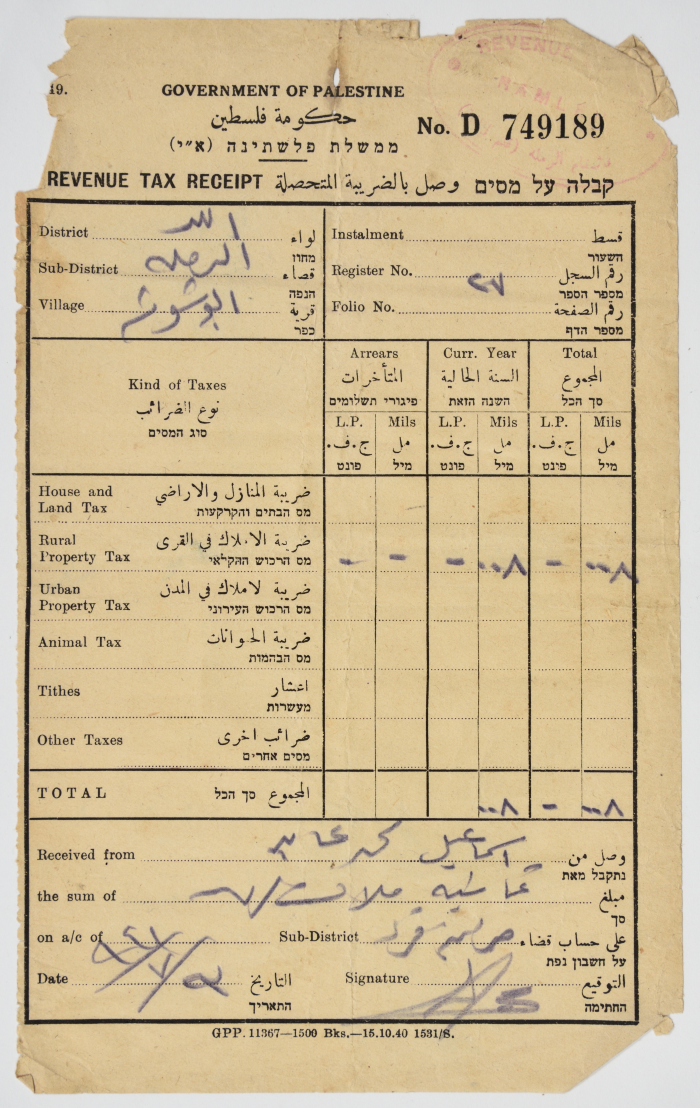 19.
GOVERNMENT OF PALESTINE
حكومة فلسطين
ממשלת פלשתינה (א״י)
No. D 749189
REVENUE
RAMLE
REVENUE TAX RECEIPT وصل بالضريبة المتحصلة קבלה על מסים
District اللد لواء
מחוז
Sub-District الرملة قضاء
הנפה
Village ابو شوشة قرية
כפר
Instalment قسط
השעור
Register No. رقم السجل
מספר הספר
٢٧
Folio No. رقم الصفحة
מספר הדף
Kind of Taxes
نوع الضرائب
סוג המסים
Arrears
المتأخرات
פיגורי תשלומים
Curr. Year
السنة الحالية
השנה הזאת
Total
المجموع
סך הכל
L.P. Mils L.P. Mils L.P. Mils
ج.ف. مل ج.ف. مل ج.ف. مل
פונט מיל פונט מיל פונט מיל
House and Land Tax ضريبة المنازل والاراضي
מס הבתים והקרקעות
Rural Property Tax ضريبة الاملاك في القرى
מס הרכוש החקלאי
- - - ٠٠٨ - ٠٠٨
Urban Property Tax ضريبة لاملاك في المدن
מס הרכוש העירוני
Animal Tax ضريبة الحوانات
מס הבהמות
Tithes اعشار
מעשרות
Other Taxes ضرائب اخرى
מסים אחרים
TOTAL المجموع סך הכל ٠٠٨ - ٠٠٨
Received from اسماعيل محمد وصل من
נתקבל מאת
the sum of ثمانية ملات مبلغ
סך
on a/c of Sub-District على حساب قضاء
על חשבון נפת
Date التاريخ
התאריך
Signature التوقيع
החתימה
GPP. 11367—1500 Bks.—15.10.40 1531/S.